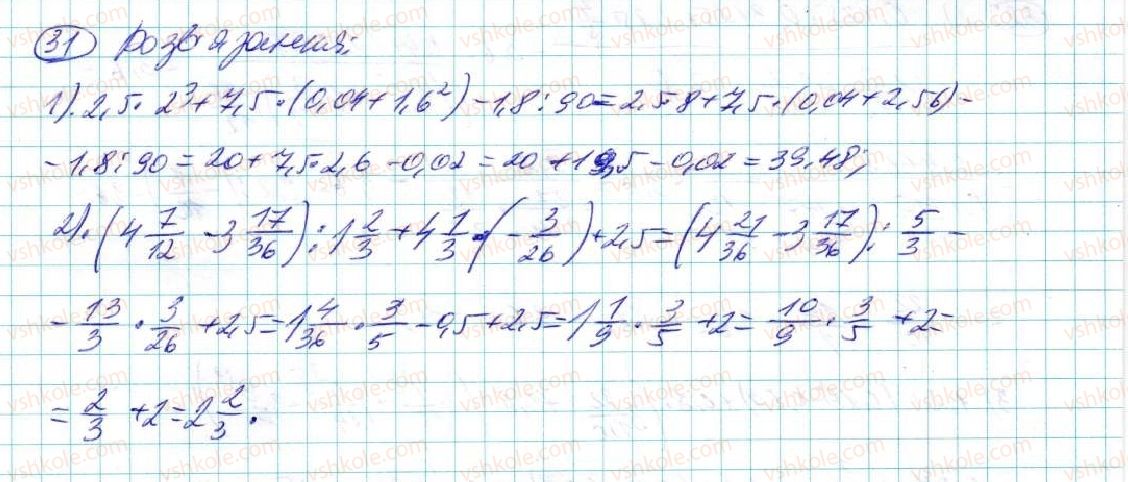 31 Розв'язання:
1). 2,5 · 2³ + 7,5 · (0,04 + 1,6²) - 1,8 : 90 = 2,5 · 8 + 7,5 · (0,04 + 2,56) -
- 1,8 : 90 = 20 + 7,5 · 2,6 - 0,02 = 20 + 19,5 - 0,02 = 39,48;
2). (4 7/12 - 3 17/36) : 1 2/3 + 4 1/3 · (- 3/26) + 2,5 = (4 21/36 - 3 17/36) : 5/3 -
- 13/3 · 3/26 + 2,5 = 1 4/36 · 3/5 - 0,5 + 2,5 = 1 1/9 · 3/5 + 2 = 10/9 · 3/5 + 2 =
= 2/3 + 2 = 2 2/3.
vshkole.com